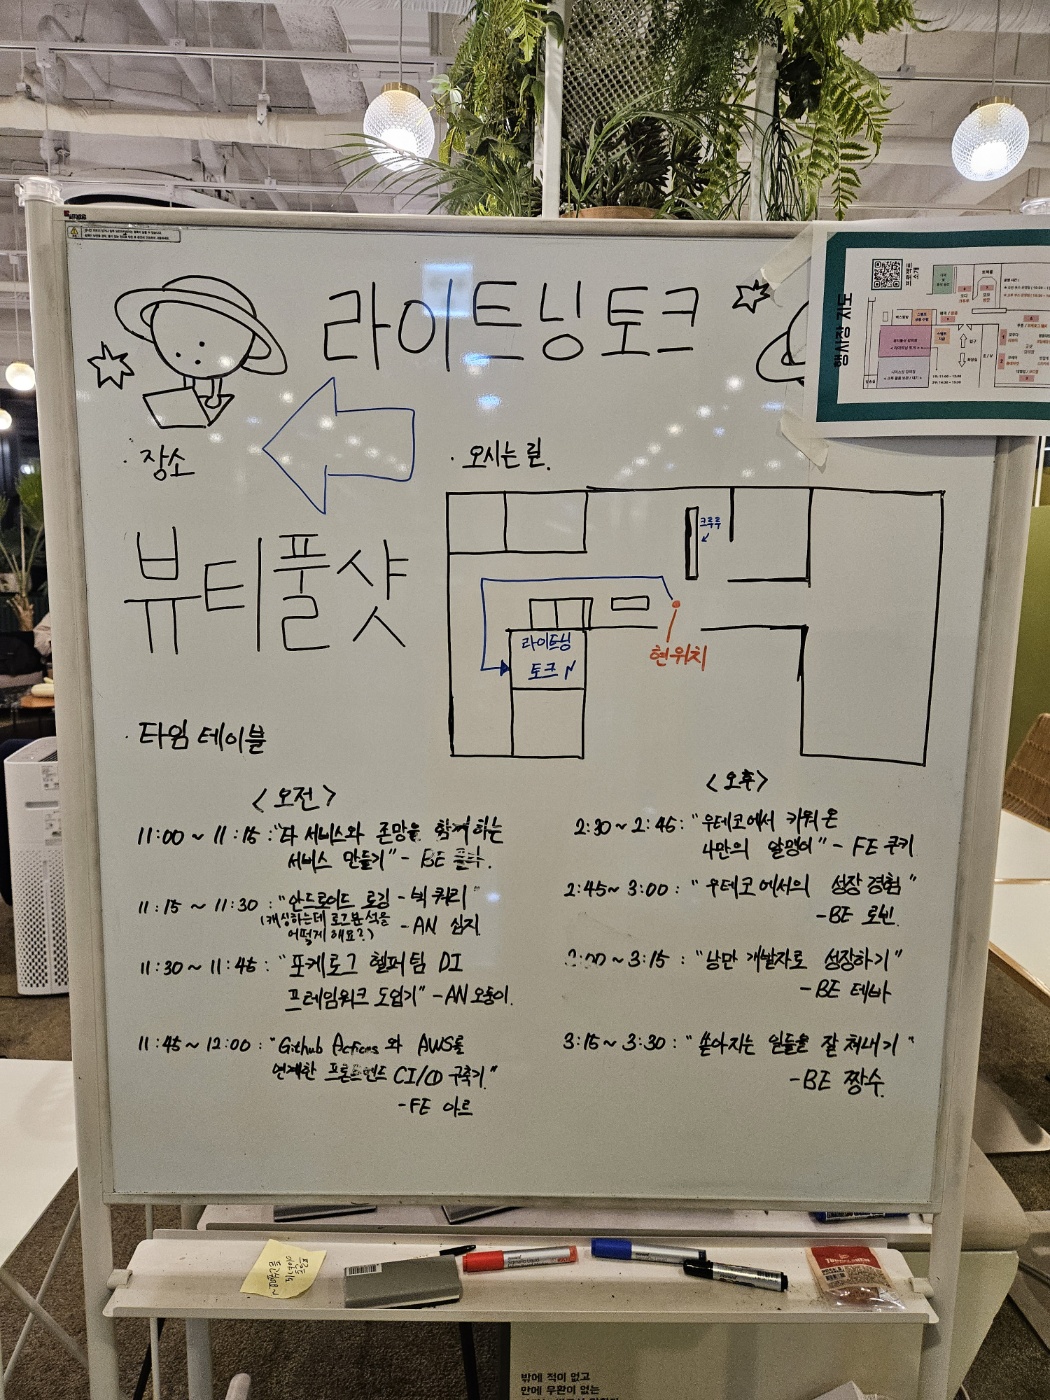 라이트닝토크
· 장소
· 오시는 길.
뷰티풀샷
크루루
라이트닝
토크
현위치
· 타임 테이블
<오전>
11:00 ~ 11:15 : "타 서비스와 존망을 함께하는
서비스 만들기" - BE
11:15 ~ 11:30 : "안드로이드 로깅 - 빅 쿼리"
(캐싱하는데 로그분석을
어떻게 해요?)
- AN 심지
11:30 ~ 11:45 : "포케로그 헬퍼팀 DI
프레임워크 도입기" - AN 오둥이.
11:45 ~ 12:00 : "Github Actions 와 AWS를
연계한 프론트엔드 CI/CD 구축기."
- FE 아르
<오후>
2:30 ~ 2:45 : "우테코에서 키워온
나만의 알맹이" - FE 쿠키
2:45 ~ 3:00 : "우테코에서의 성장 경험"
- BE 로빈.
3:00 ~ 3:15 : "낭만 개발자로 성장하기"
- BE 테바
3:15 ~ 3:30 : "쏟아지는 일들을 잘 쳐내기"
- BE 짱수.
행사장 지도
밖에 적이 없고
안에 우환이 없는